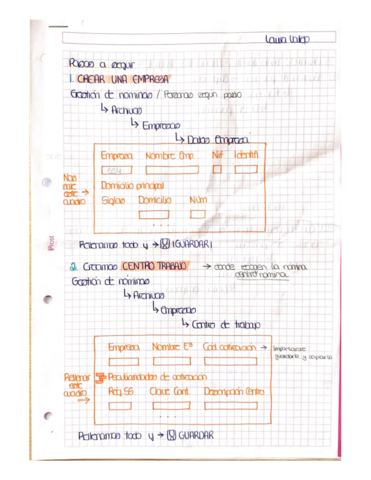 Laura
Pasos a seguir
1. CREAR UNA EMPRESA
Gestión de nominas / Personas según paso
↳ Archivos
↳ Empresas
↳ Datos Empresa
Empresa Nombre Emp. Nif Identifi
Nos sale este cuadro →
Domicilio principal
Siglas Domicilio Num
. . .
Rellenamos todo y → ¡GUARDAR!
2. Creamos CENTRO TRABAJO → donde recogen la nomina
centro nomina
Gestión de nominas
↳ Archivos
↳ Empresas
↳ Centro de trabajo
Empresa Nombre Eª Cod. cotización → Importante guardarlo y copiarlo
Rellenar este cuadro →
Peculiaridades de cotización
Reg. SS Clave Cont. Descripción Centro
. . .
Rellenamos todo y → GUARDAR